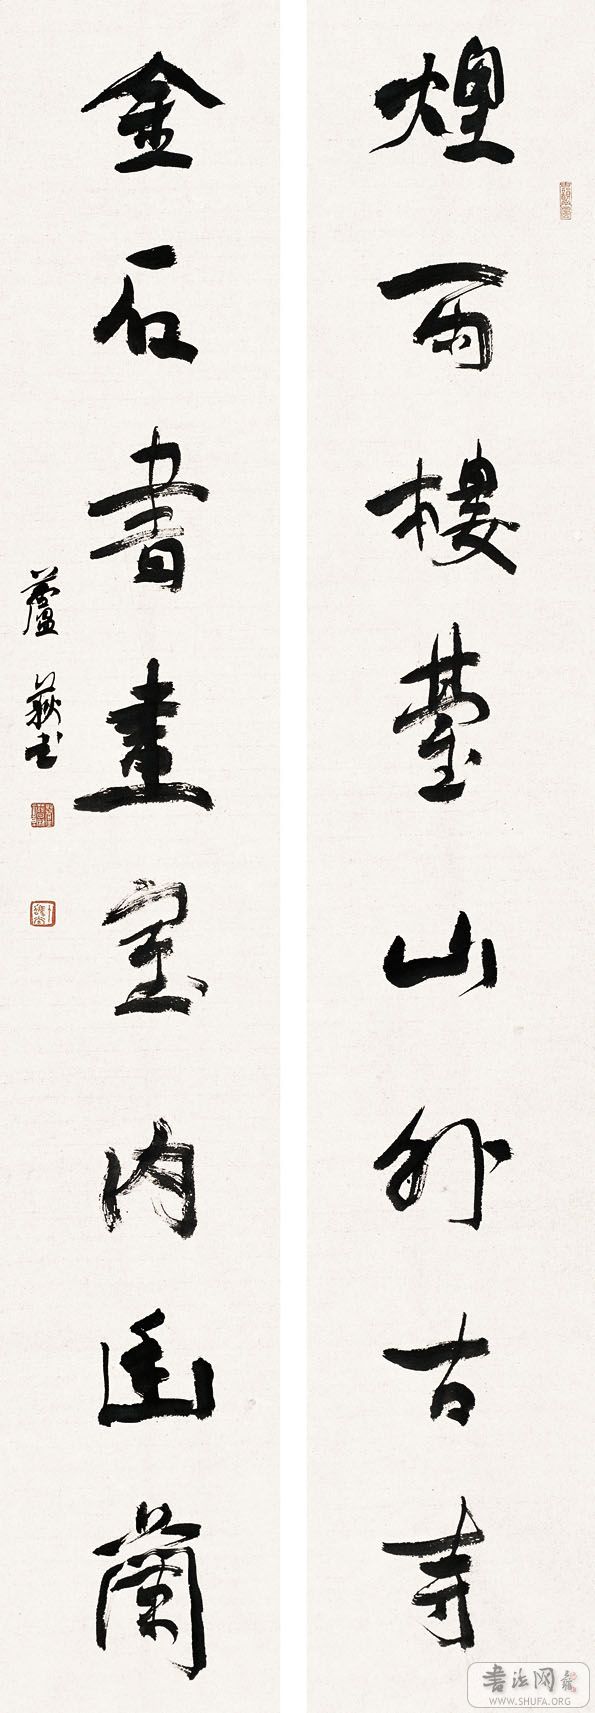 煙雨樓臺山外古寺
金石書畫室内幽蘭
蘆荻書
書法网
WWW.SHUFA.ORG